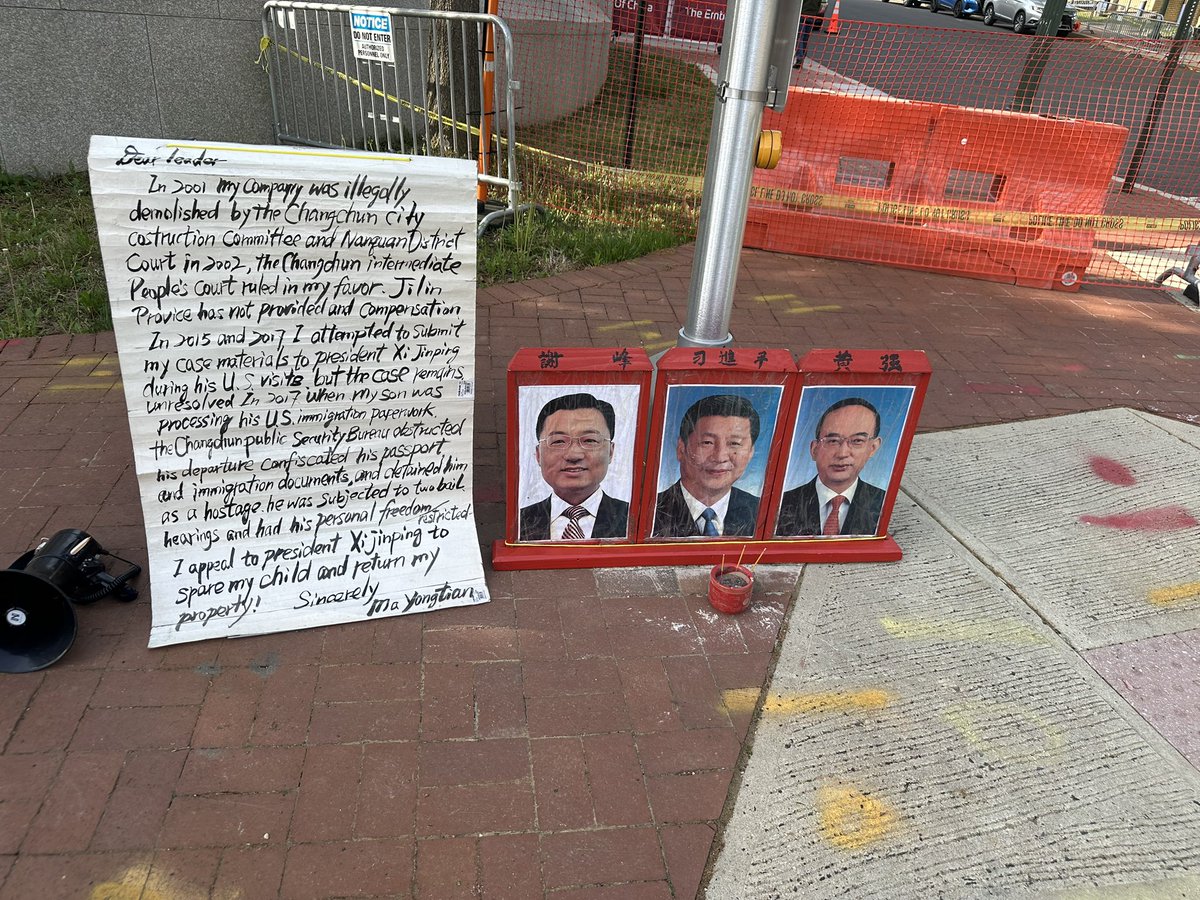 Of China
The Emb
NOTICE
DO NOT ENTER
AUTHORIZED
PERSONNEL ONLY
Dear leader
In 2001 my Company was illegally
demolished by the Changchun city
Costruction Committee and Nanquan District
Court in 2002, the Changchun intermediate
People's Court ruled in my favor. Jilin
Provice has not provided and Compensation
In 2015 and 2017 I attempted to Submit
my case materials to president Xi Jinping
during his U.S visits, but the case remains
unresolved In 2017 when my son was
processing his U.S. immigration paperwork.
the Changchun public Security Bureau obstructed
his departure confiscated his passport,
and immigration documents, and detained him
as a hostage. he was subjected to two bail
hearings and had his personal freedom restricted
I appeal to president Xi jinping to
spare my child and return my
property! Sincerely
Ma Yongtian
謝 峰
习 進 平
黄 强